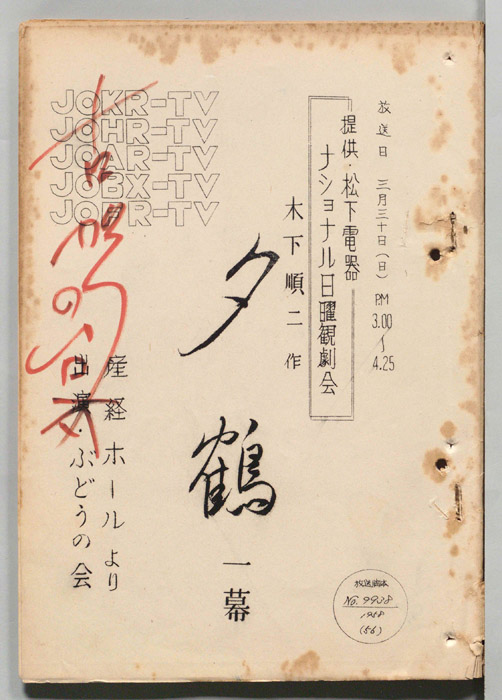 放送日 三月三十日(日) PM 3.00〜4.25
提供・松下電器
ナショナル日曜観劇会
木下順二 作
夕鶴 一幕
産経ホールより
出演・ぶどうの会
JOKR-TV
JOHR-TV
JOAR-TV
JOBX-TV
JOFR-TV
放送脚本
No. 9938
1958
(56)